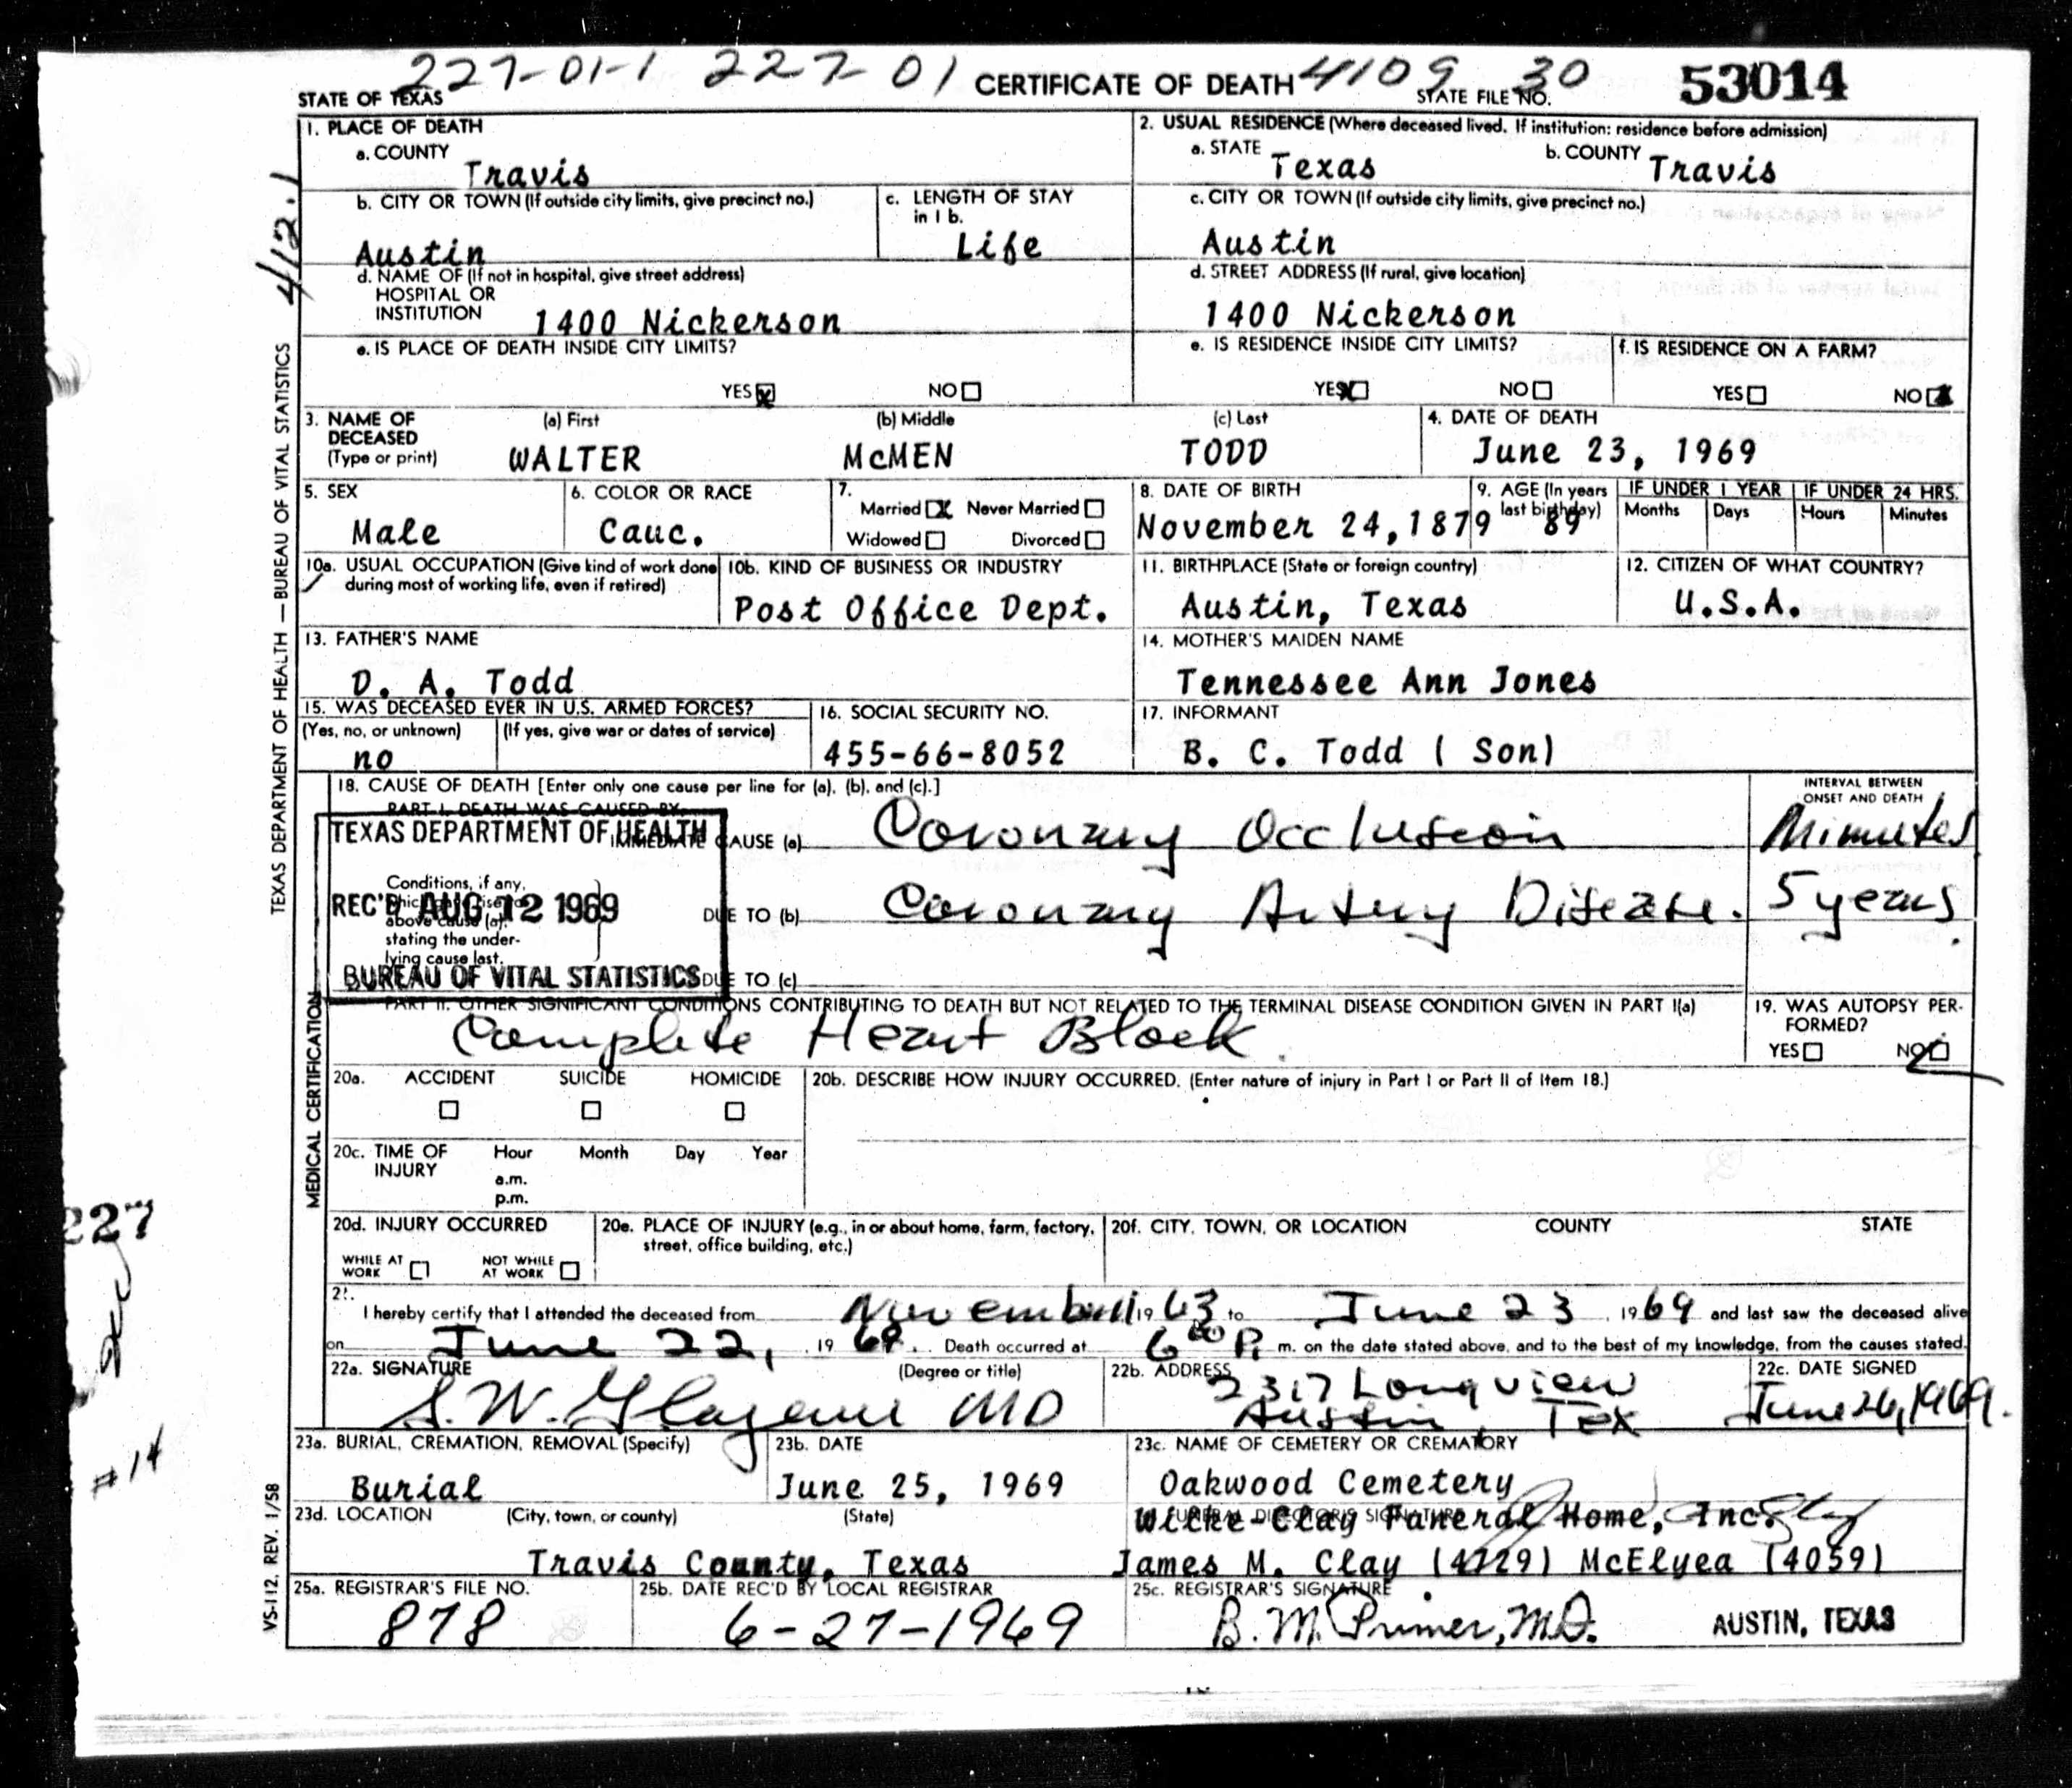 227-01-1 227-01 CERTIFICATE OF DEATH 4109 30 53014
STATE OF TEXAS STATE FILE NO.
1. PLACE OF DEATH
a. COUNTY
Travis
2. USUAL RESIDENCE (Where deceased lived. If institution: residence before admission)
a. STATE b. COUNTY
Texas Travis
b. CITY OR TOWN (If outside city limits, give precinct no.)
Austin
c. LENGTH OF STAY
in 1 b.
Life
c. CITY OR TOWN (If outside city limits, give precinct no.)
Austin
d. NAME OF (If not in hospital, give street address)
HOSPITAL OR
INSTITUTION 1400 Nickerson
d. STREET ADDRESS (If rural, give location)
1400 Nickerson
e. IS PLACE OF DEATH INSIDE CITY LIMITS?
YES X NO
e. IS RESIDENCE INSIDE CITY LIMITS?
YES X NO
f. IS RESIDENCE ON A FARM?
YES NO X
3. NAME OF (a) First (b) Middle (c) Last
DECEASED
(Type or print) WALTER McMEN TODD
4. DATE OF DEATH
June 23, 1969
5. SEX
Male
6. COLOR OR RACE
Cauc.
7.
Married X Never Married
Widowed Divorced
8. DATE OF BIRTH
November 24, 1879
9. AGE (In years
last birthday)
89
IF UNDER 1 YEAR IF UNDER 24 HRS.
Months Days Hours Minutes
10a. USUAL OCCUPATION (Give kind of work done
during most of working life, even if retired)
10b. KIND OF BUSINESS OR INDUSTRY
Post Office Dept.
11. BIRTHPLACE (State or foreign country)
Austin, Texas
12. CITIZEN OF WHAT COUNTRY?
U.S.A.
13. FATHER'S NAME
D. A. Todd
14. MOTHER'S MAIDEN NAME
Tennessee Ann Jones
15. WAS DECEASED EVER IN U.S. ARMED FORCES?
(Yes, no, or unknown) (If yes, give war or dates of service)
no
16. SOCIAL SECURITY NO.
455-66-8052
17. INFORMANT
B. C. Todd ( Son)
18. CAUSE OF DEATH [Enter only one cause per line for (a), (b), and (c).]
PART I. DEATH WAS CAUSED BY
IMMEDIATE CAUSE (a) Coronary Occlusion
INTERVAL BETWEEN
ONSET AND DEATH
Minutes
Conditions, if any,
which gave rise to
above cause (a),
stating the under-
lying cause last.
DUE TO (b) Coronary Artery Disease. 5 years
DUE TO (c)
TEXAS DEPARTMENT OF HEALTH
REC'D AUG 12 1969
BUREAU OF VITAL STATISTICS
PART II. OTHER SIGNIFICANT CONDITIONS CONTRIBUTING TO DEATH BUT NOT RELATED TO THE TERMINAL DISEASE CONDITION GIVEN IN PART I(a)
Complete Heart Block.
19. WAS AUTOPSY PER-
FORMED?
YES NO
20a. ACCIDENT SUICIDE HOMICIDE
20b. DESCRIBE HOW INJURY OCCURRED. (Enter nature of injury in Part I or Part II of Item 18.)
20c. TIME OF Hour Month Day Year
INJURY
a.m.
p.m.
20d. INJURY OCCURRED
WHILE AT WORK NOT WHILE AT WORK
20e. PLACE OF INJURY (e.g., in or about home, farm, factory,
street, office building, etc.)
20f. CITY, TOWN, OR LOCATION COUNTY STATE
21.
I hereby certify that I attended the deceased from November 1963 to June 23, 1969 and last saw the deceased alive
on June 22, 1969. Death occurred at 6 00 P. m. on the date stated above, and to the best of my knowledge, from the causes stated.
22a. SIGNATURE (Degree or title)
S. W. MD
22b. ADDRESS
2317 Longview
Austin, Tex
22c. DATE SIGNED
June 26, 1969.
23a. BURIAL, CREMATION, REMOVAL (Specify)
Burial
23b. DATE
June 25, 1969
23c. NAME OF CEMETERY OR CREMATORY
Oakwood Cemetery
23d. LOCATION (City, town, or county) (State)
Travis County, Texas
FUNERAL DIRECTOR'S SIGNATURE
Wilke-Clay Funeral Home, Inc.
James M. Clay (4729) McElyea (4059)
25a. REGISTRAR'S FILE NO.
878
25b. DATE REC'D BY LOCAL REGISTRAR
6-27-1969
25c. REGISTRAR'S SIGNATURE
B. M. Primer, M.D. AUSTIN, TEXAS
TEXAS DEPARTMENT OF HEALTH — BUREAU OF VITAL STATISTICS
412.1
MEDICAL CERTIFICATION
VS-112, REV. 1/58
227
#14